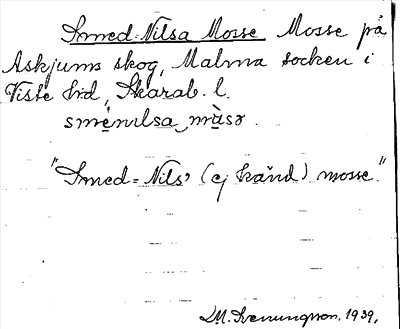 Smed-Nilsa Mosse Mosse på
Askjums skog, Malma socken i
Viste hd, Skarab. l.
smènɪlsa màsə.
"Smed-Nils' (ej känd) mosse."
M. 1939,